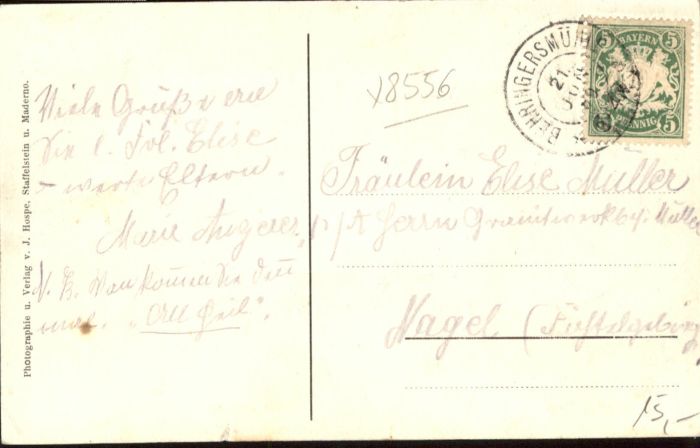 Photographie u. Verlag v. J. Hospe, Staffelstein u. Maderno.
Viele Grüße an
Sie l. Frl. Elise
werte Eltern.
Marie Angerer
N. B. Wan kommen Sie den
mal. „All Heil".
18556
BEHRINGERSMÜHLE
21. JUN
5 BAYERN 5
5 PFENNIG 5
Fräulein Elise Müller
p/A Herrn Granitwerkbes. Müller
Nagel (Fichtelgebirg
15,-